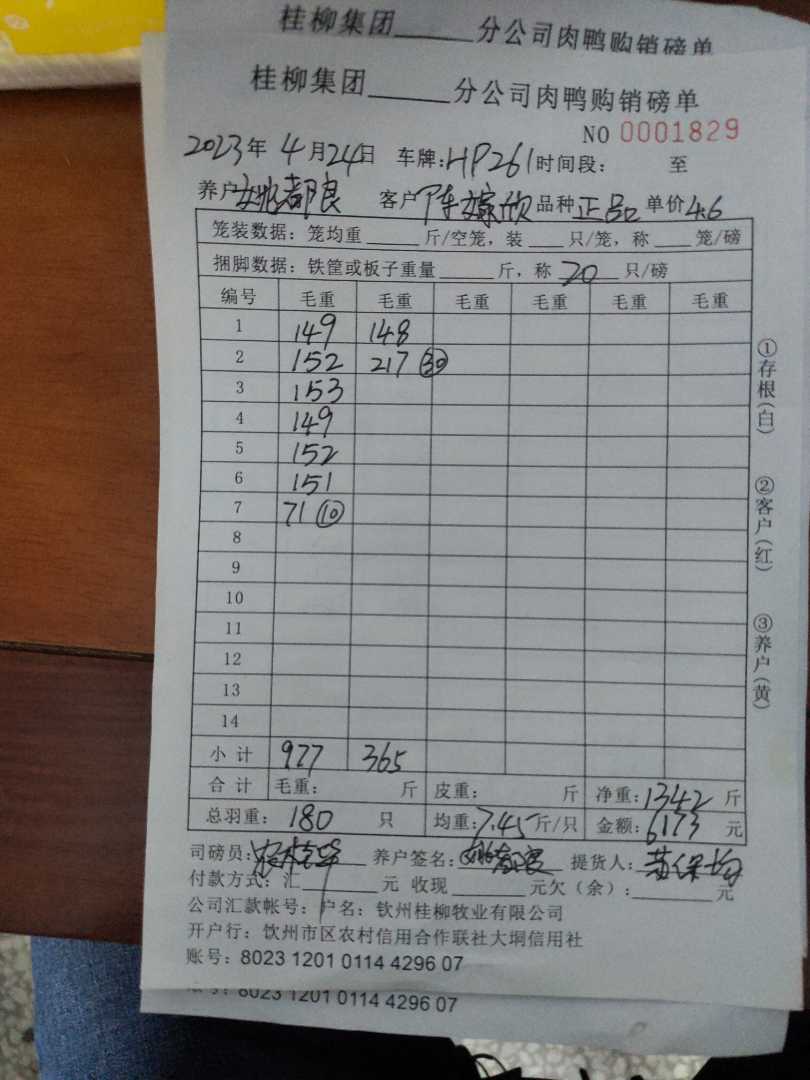 桂柳集团______分公司肉鸭购销磅单
桂柳集团______分公司肉鸭购销磅单
NO 0001829
2023年 4月24日 车牌:HP261 时间段: 至
养户 姚都良 客户 陈嫁欣 品种 正品 单价 4.6
笼装数据:笼均重____斤/空笼,装___只/笼,称___笼/磅
捆脚数据:铁筐或板子重量____斤,称 20 只/磅
编号 毛重 毛重 毛重 毛重 毛重 毛重
1 149 148
2 152 217 ㉚
3 153
4 149
5 152
6 151
7 71 ⑩
8
9
10
11
12
13
14
小计 977 365
合计 毛重: 斤 皮重: 斤 净重:1342 斤
总羽重: 180 只 均重:7.45斤/只 金额:6173 元
司磅员: 养户签名:姚都良 提货人:
付款方式:汇______元 收现______元欠(余):______元
公司汇款帐号:户名:钦州桂柳牧业有限公司
开户行:钦州市区农村信用合作联社大垌信用社
账号:8023 1201 0114 4296 07
账号:8023 1201 0114 4296 07
①存根(白)
②客户(红)
③养户(黄)